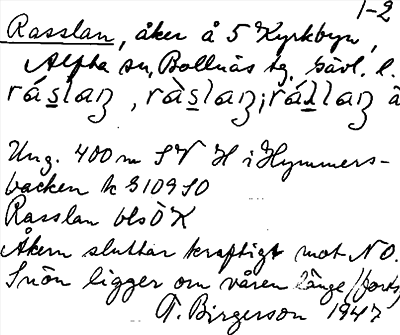 1-2
Rasslan, åker å 5 Kyrkbyn,
Alfta sn, Bollnäs tg, Gävl. l.
ráslaŋ, ràslaŋ; rállaŋ å
Ung. 400 m SV H i Hymmers-
backen k G109 SO
Rasslan bls Ö K
Åkern sluttar kraftigt mot NO.
Snön ligger om våren länge (forts)
T. Birgerson 1947